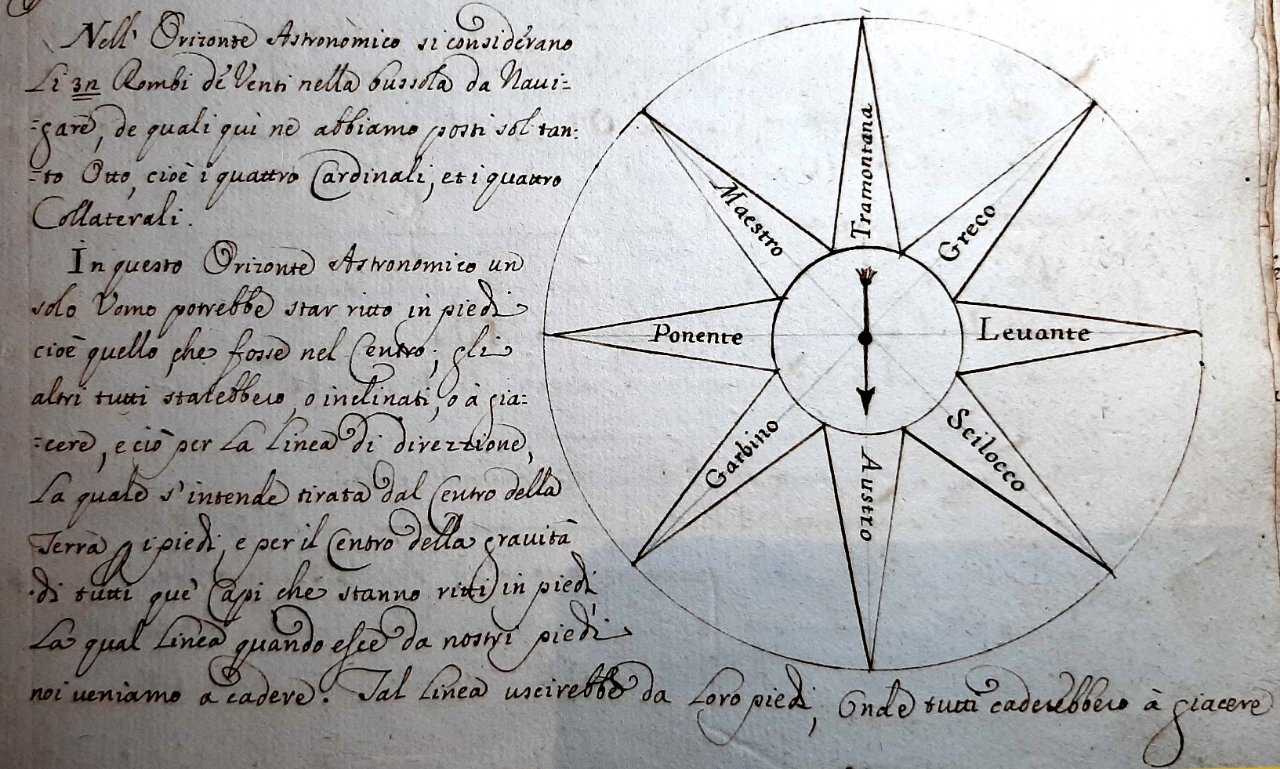 Nell' Orizonte Astronomico si considerano
Li 32 Rombi de Venti nella bussola da Navi=
=gare, de quali qui ne abbiamo posti sol tan=
=to Otto, cioè i quattro Cardinali, et i quattro
Collaterali.
In questo Orizonte Astronomico un
solo Uomo potrebbe star ritto in piedi
cioè quello che fosse nel Centro; gli
altri tutti starebbero o inclinati, o à gia=
=cere, e ciò per La Linea di direzzione,
La quale s'intende tirata dal Centro della
Terra p i piedi, e per il Centro della gravità
di tutti que' Capi che stanno ritti in piedi
La qual Linea quando esce da nostri piedi
noi veniamo a cadere. Tal Linea uscirebbe da Loro piedi, Onde tutti caderebbero à giacere
Tramontana
Greco
Levante
Scilocco
Austro
Garbino
Ponente
Maestro